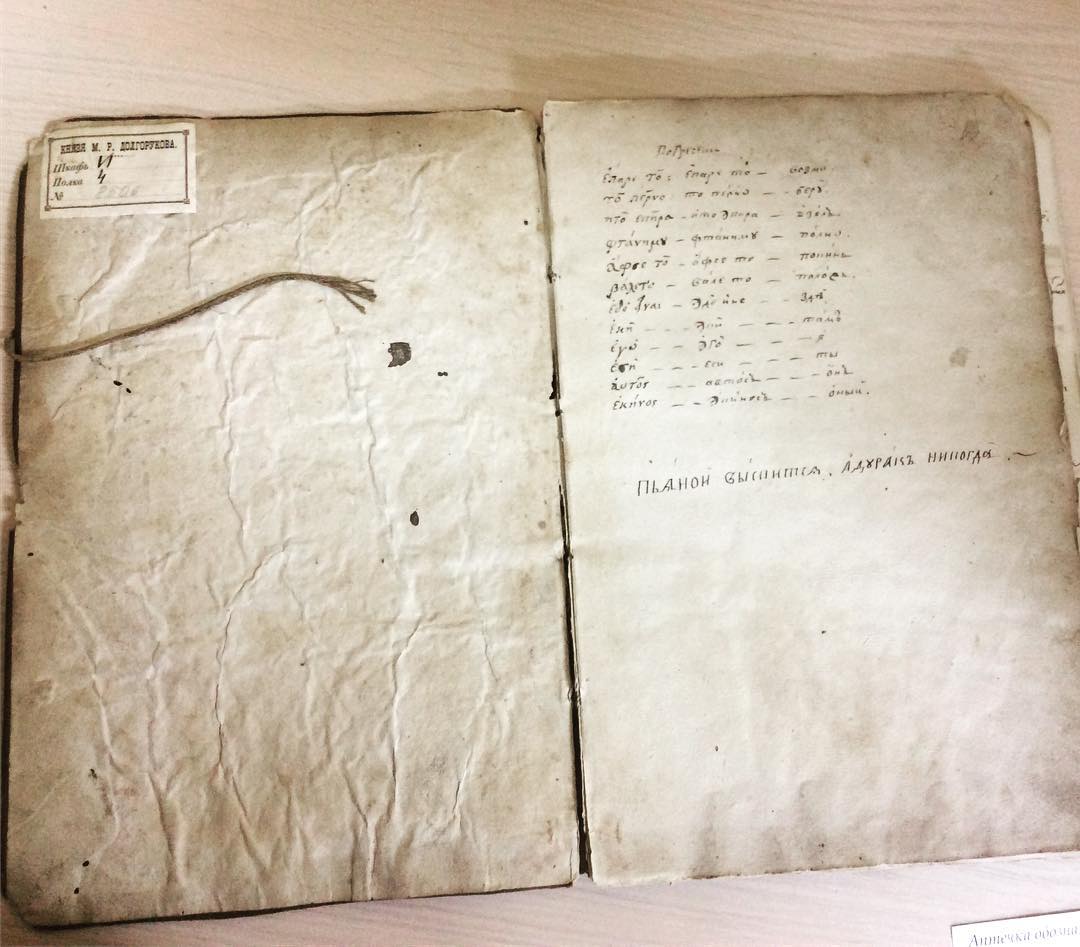 КНЯЗЯ М. Р. ДОЛГОРУКОВА.
Шкафъ И
Полка 4
№
По Гречески
ἔπαρε τὸ : ἔпаре то — возми
τὸ πέρνο : то перно — берꙋ
ἀπὸ ἐπῆρα — ἀпо эпира — взѧлъ
φτάνημꙋ — фтанимꙋ — полно
ἄφσε τὸ — ἄфсе то — покинь
βάλετο — вале то — положь.
ἐδὸ — эдо — здѣ
ἐκῆ — экй — тамъ
ἐγὼ — эго — я
ἐσὴ — еси — ты
ἀυτὸς — автосъ — онъ
ἐκήνος — экиносъ — оный.
ПЬЯНОЙ ВЫСПИТСЯ, АДУРАКЪ НИКОГДА.
Аптечка обозна